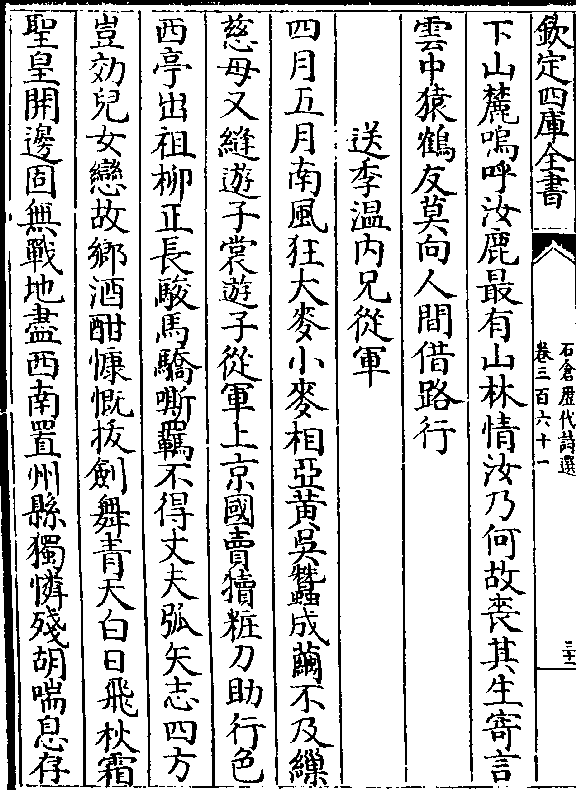 欽定四庫全書
石倉歴代詩選
卷三百六十一
三十一
下山麓嗚呼汝鹿最有山林情汝乃何故喪其生寄言
雲中猿鶴友莫向人間借路行
送季温内兄從軍
四月五月南風狂大麥小麥相亞黄吳蠶成繭不及繰
慈母又縫遊子裳遊子從軍上京國賣犢粧刀助行色
西亭出祖柳正長駿馬驕嘶羈不得丈夫弧矢志四方
豈効兒女戀故鄉酒酣慷慨拔劍舞青天白日飛秋霜
聖皇開邊固無戰地盡西南置州縣獨憐殘胡喘息存